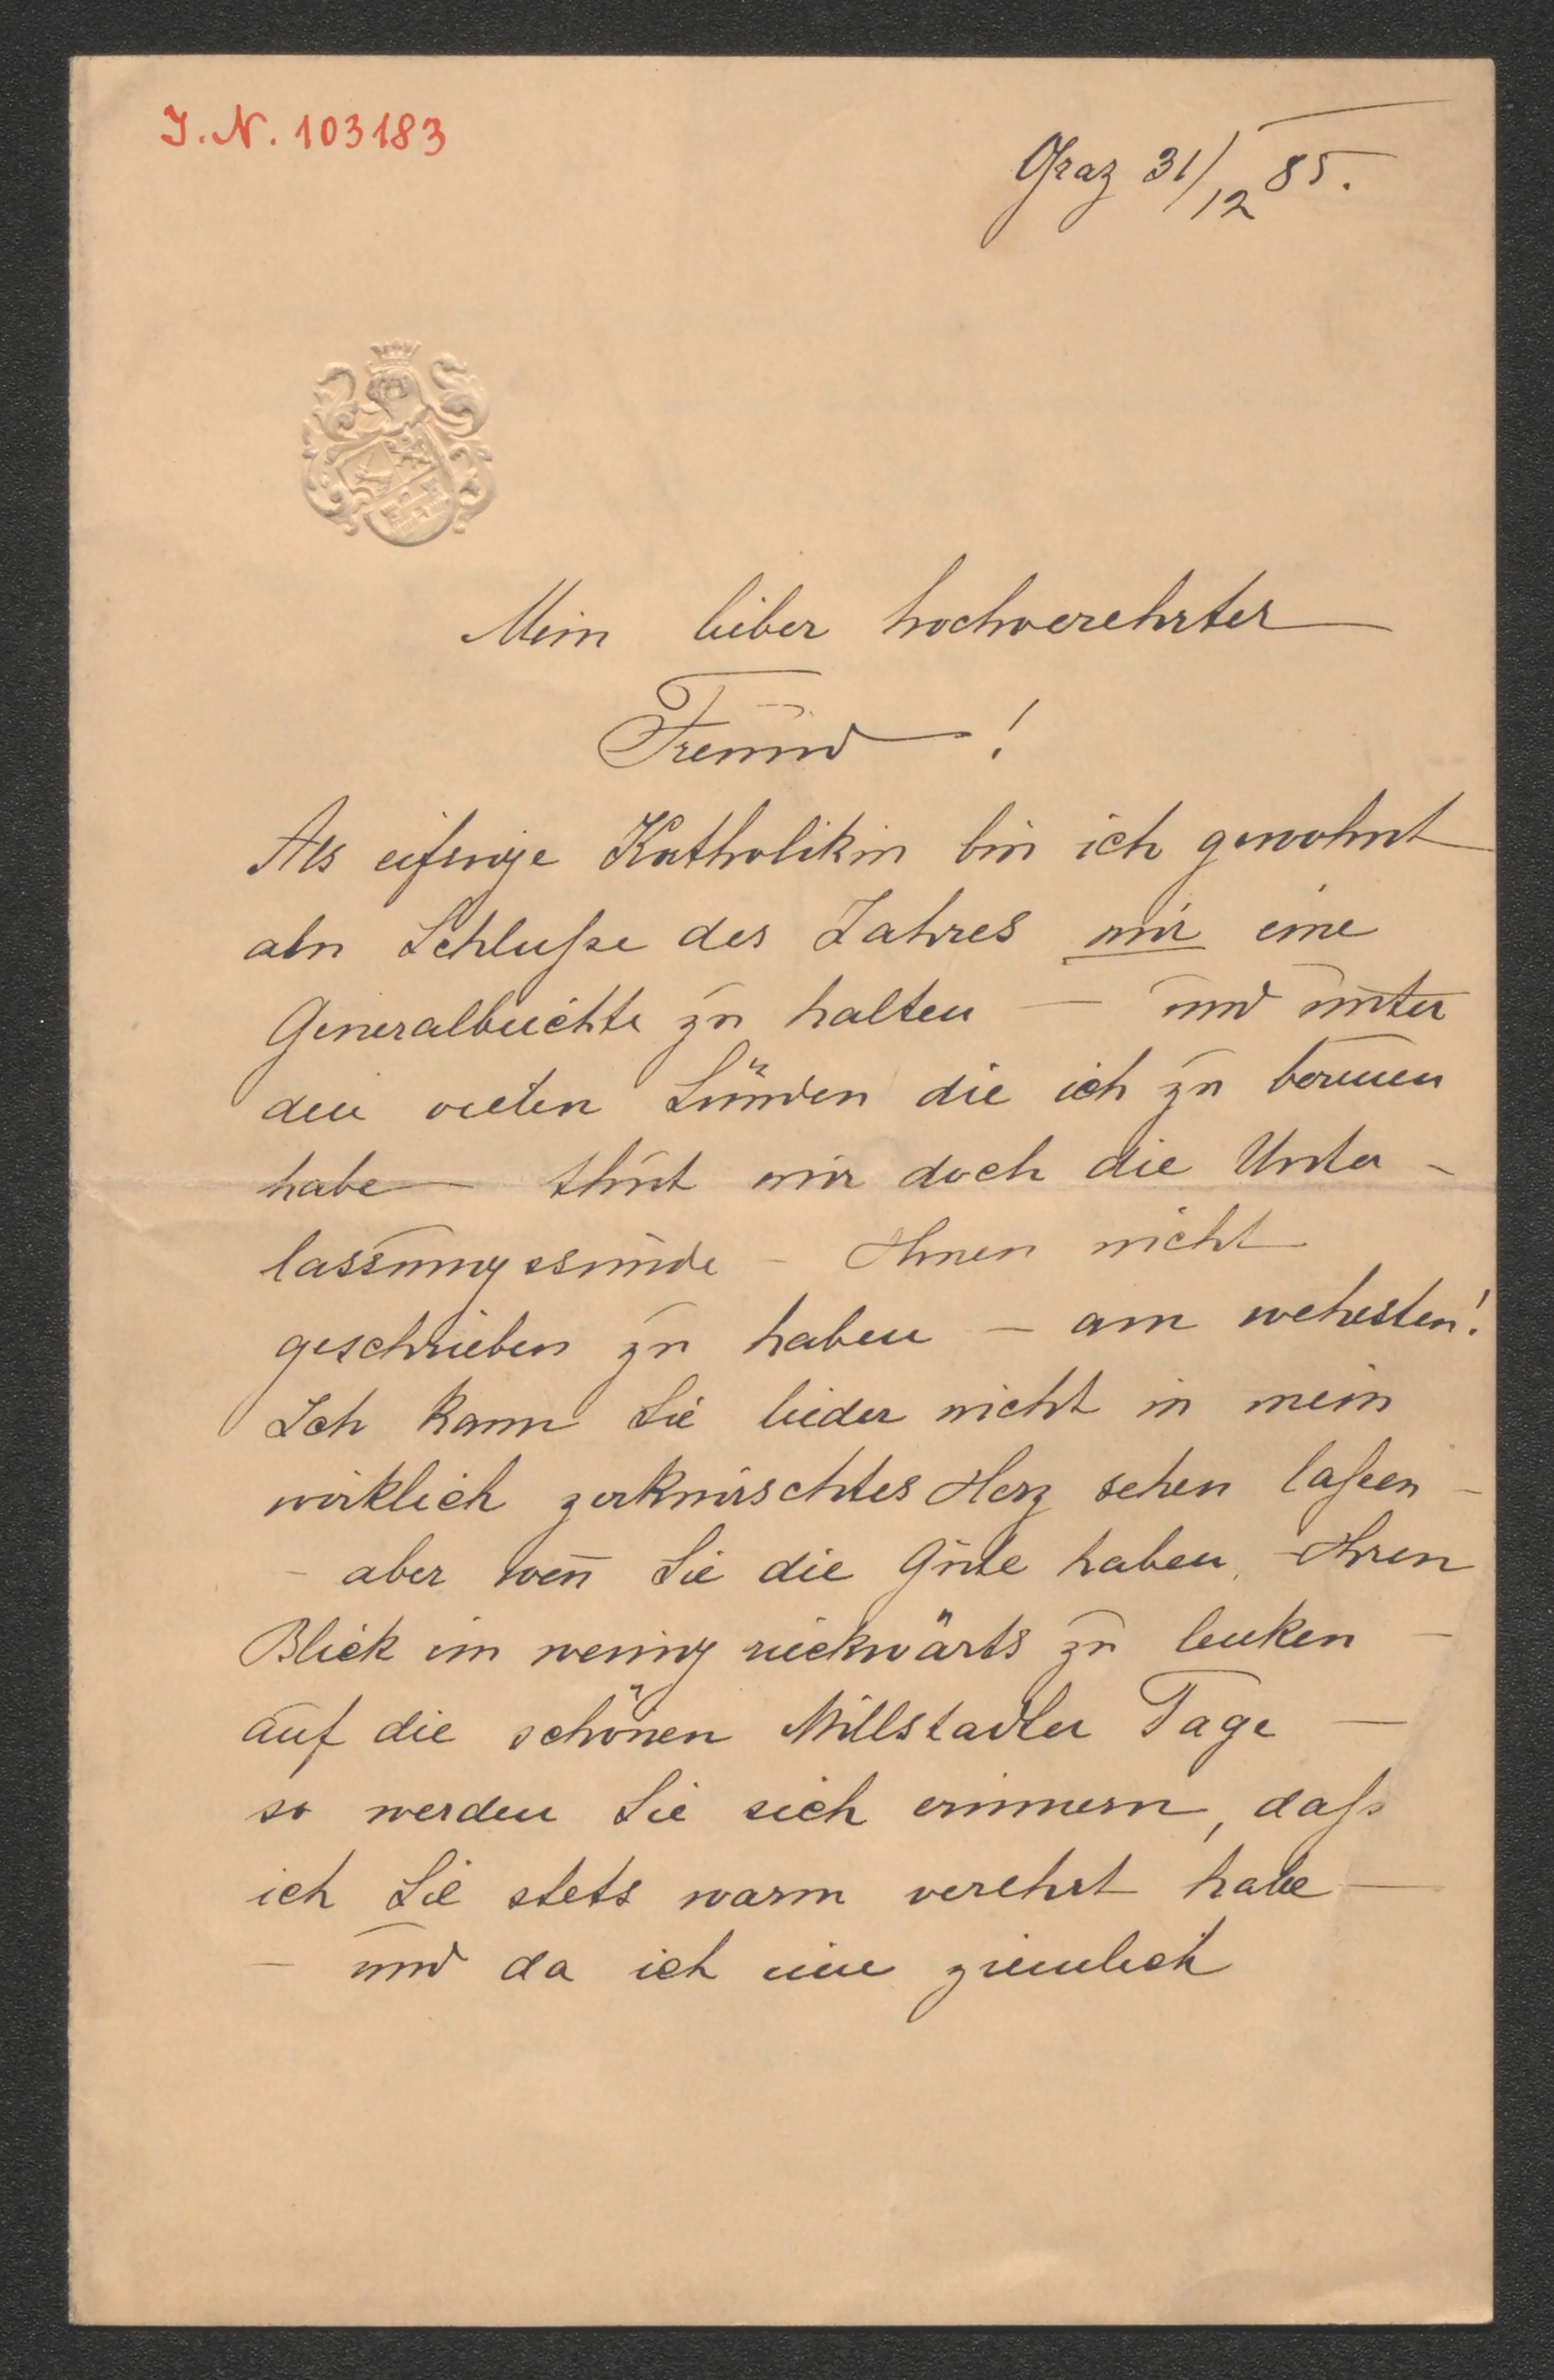 I.N. 103183
Graz 31/12 85.
Mein lieber hochverehrter
Freund !
Als eifrige Katholikin bin ich gewohnt
am Schluße des Jahres mir eine
Generalbeichte zu halten — und unter
den vielen Sünden die ich zu bereuen
habe — thut mir doch die Unter-
lassungssünde – Ihnen nicht
geschrieben zu haben – am wehesten!
Ich kann Sie leider nicht in mein
wirklich zerknirschtes Herz sehen laßen –
– aber wen̅ Sie die Güte haben, Ihren
Blick ein wenig rückwärts zu lenken –
auf die schönen Millstadler Tage —
so werden Sie sich erinnern, daß
ich Sie stets warm verehrt habe —
– und da ich eine ziemlich